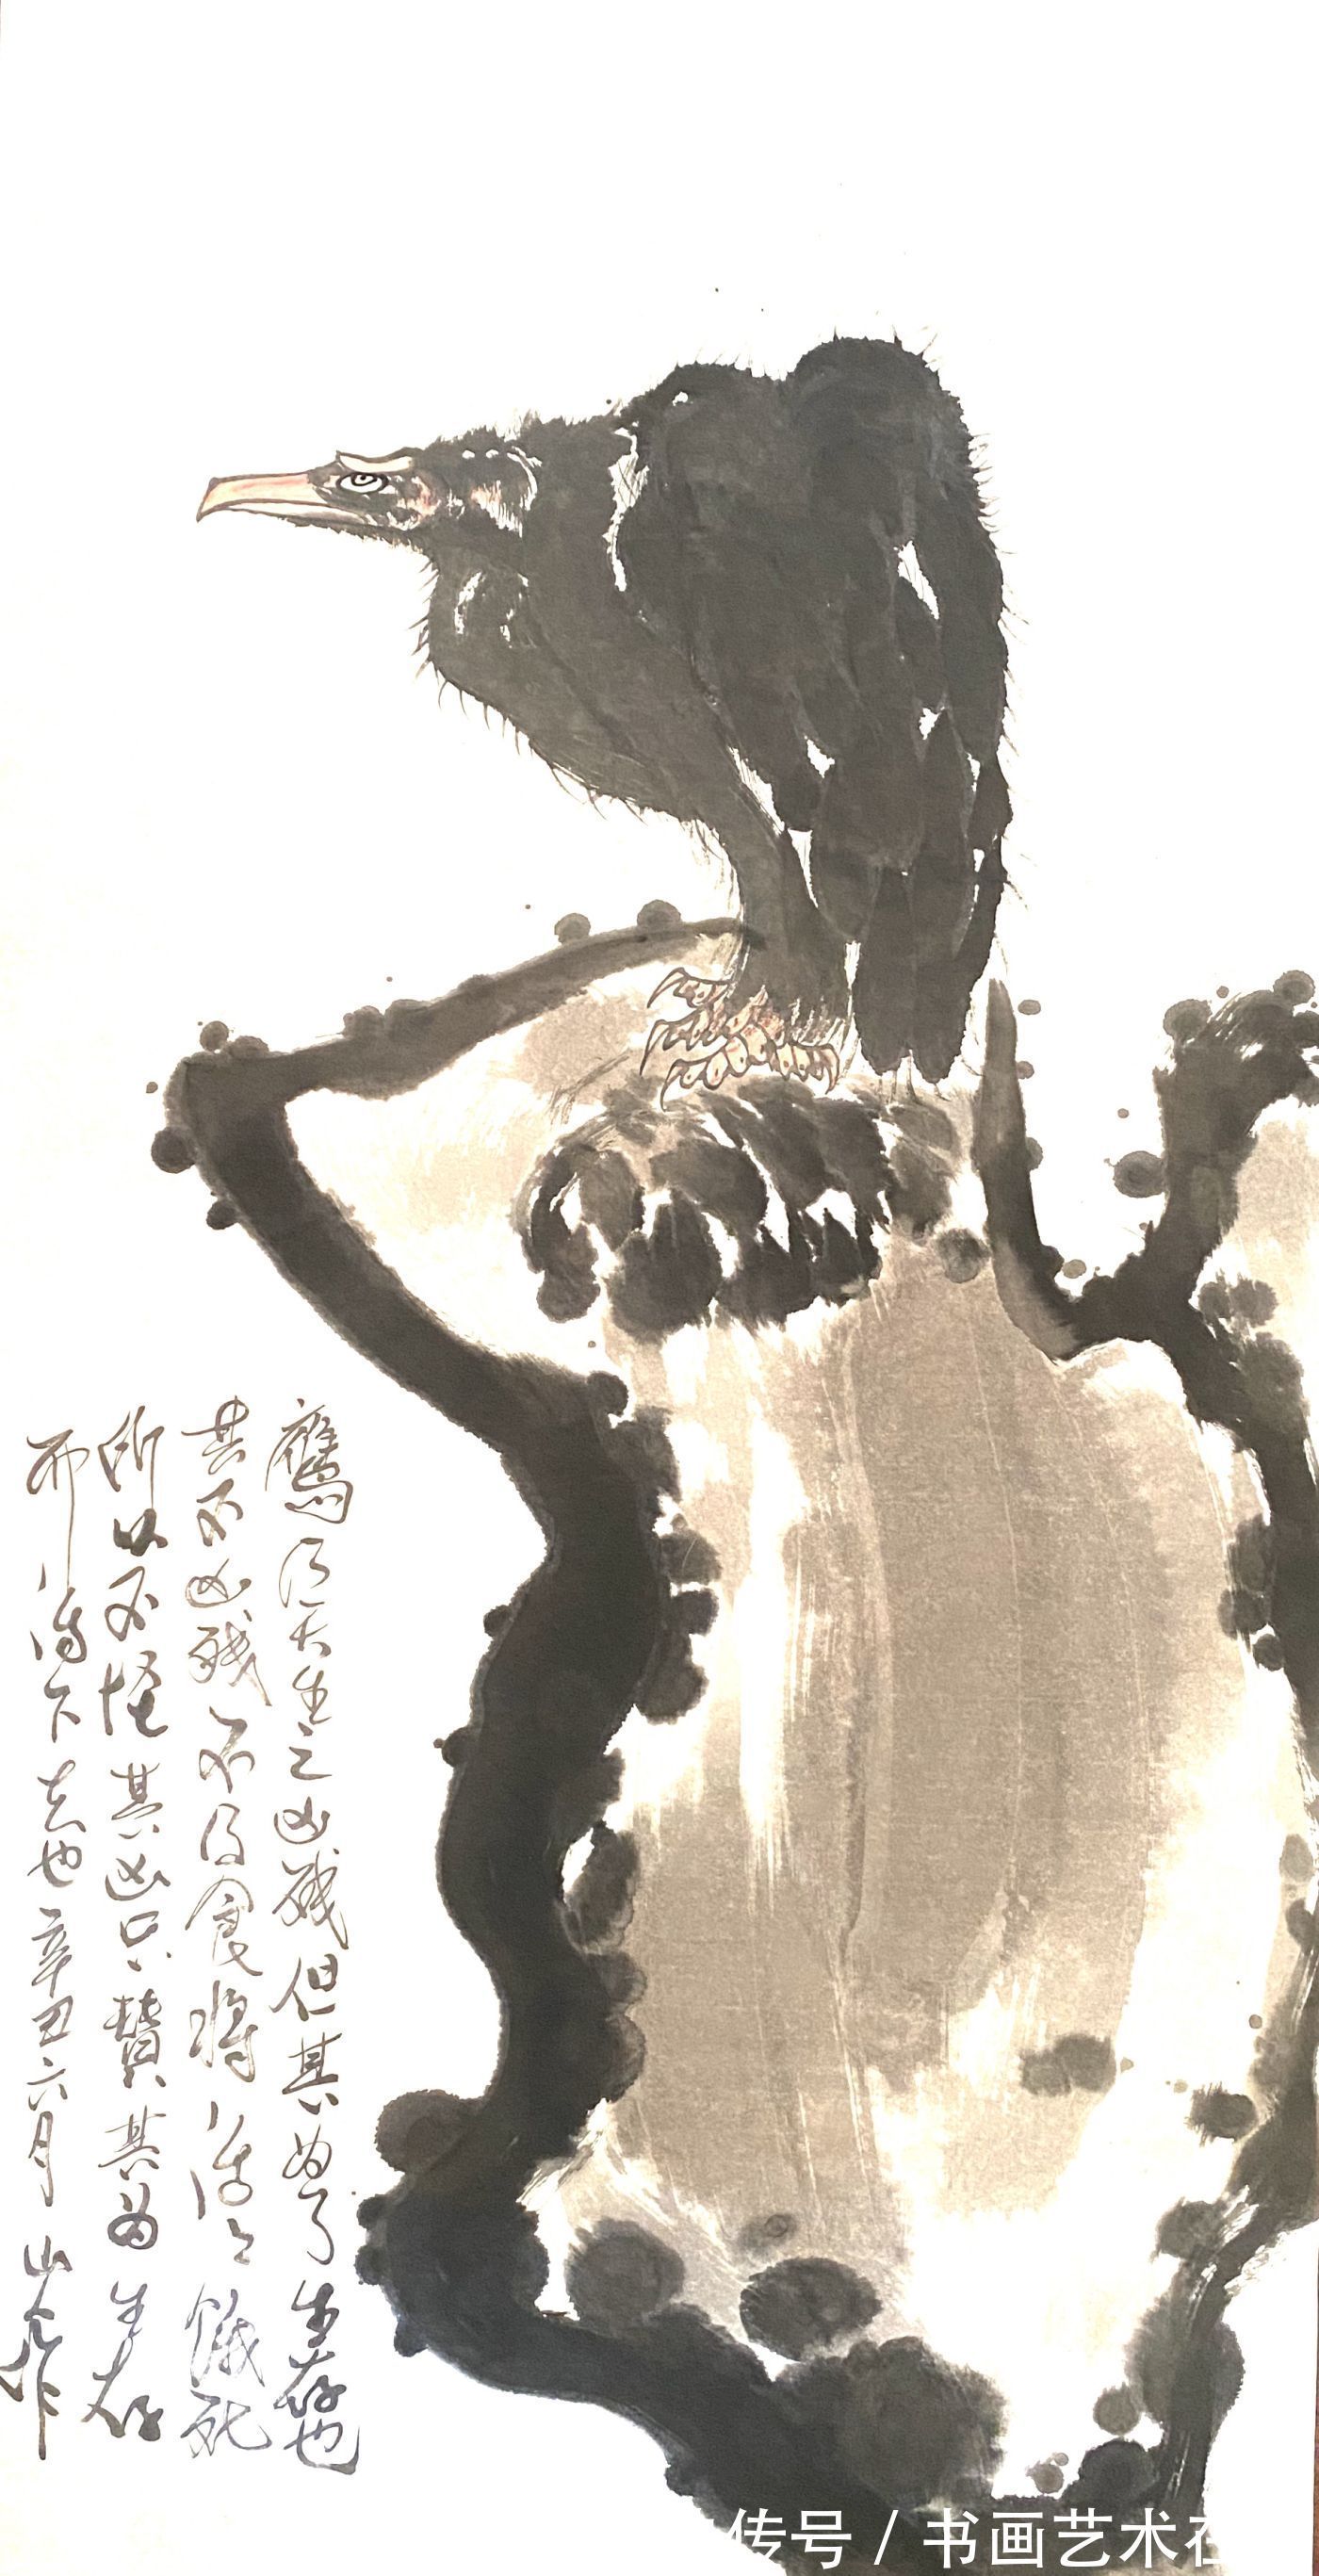 鹰 天生之凶残但其为了生存也
其不凶残不得食将活活饿死
所以不怪其凶只赞其为生存
而 下去也 辛丑六月 山
传号 / 书画艺术在